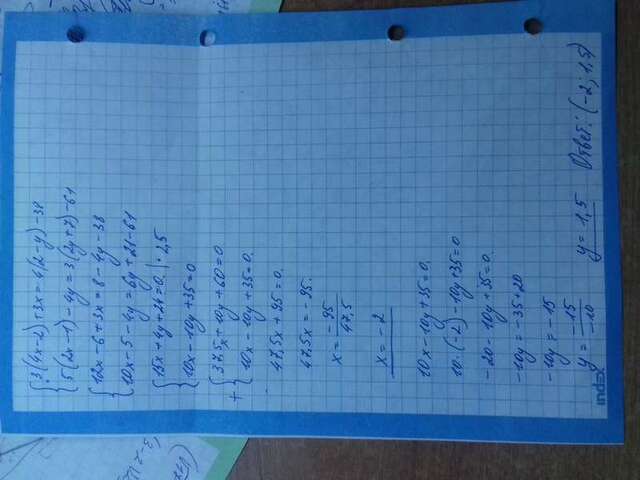 3(4x-2)+3x=4(2-y)-38
5(2x-1)-4y=3(2y+7)-61
12x-6+3x=8-4y-38
10x-5-4y=6y+21-61
15x+4y+24=0 |·2,5
10x-10y+35=0
+ 37,5x+10y+60=0
10x-10y+35=0.
47,5x+95=0.
47,5x=-95.
x=-95/47,5
x=-2
10x-10y+35=0.
10·(-2)-10y+35=0
-20-10y+35=0.
-10y=-35+20
-10y=-15
y=-15/-10 y=1,5 Ответ: (-2; 1,5)
index